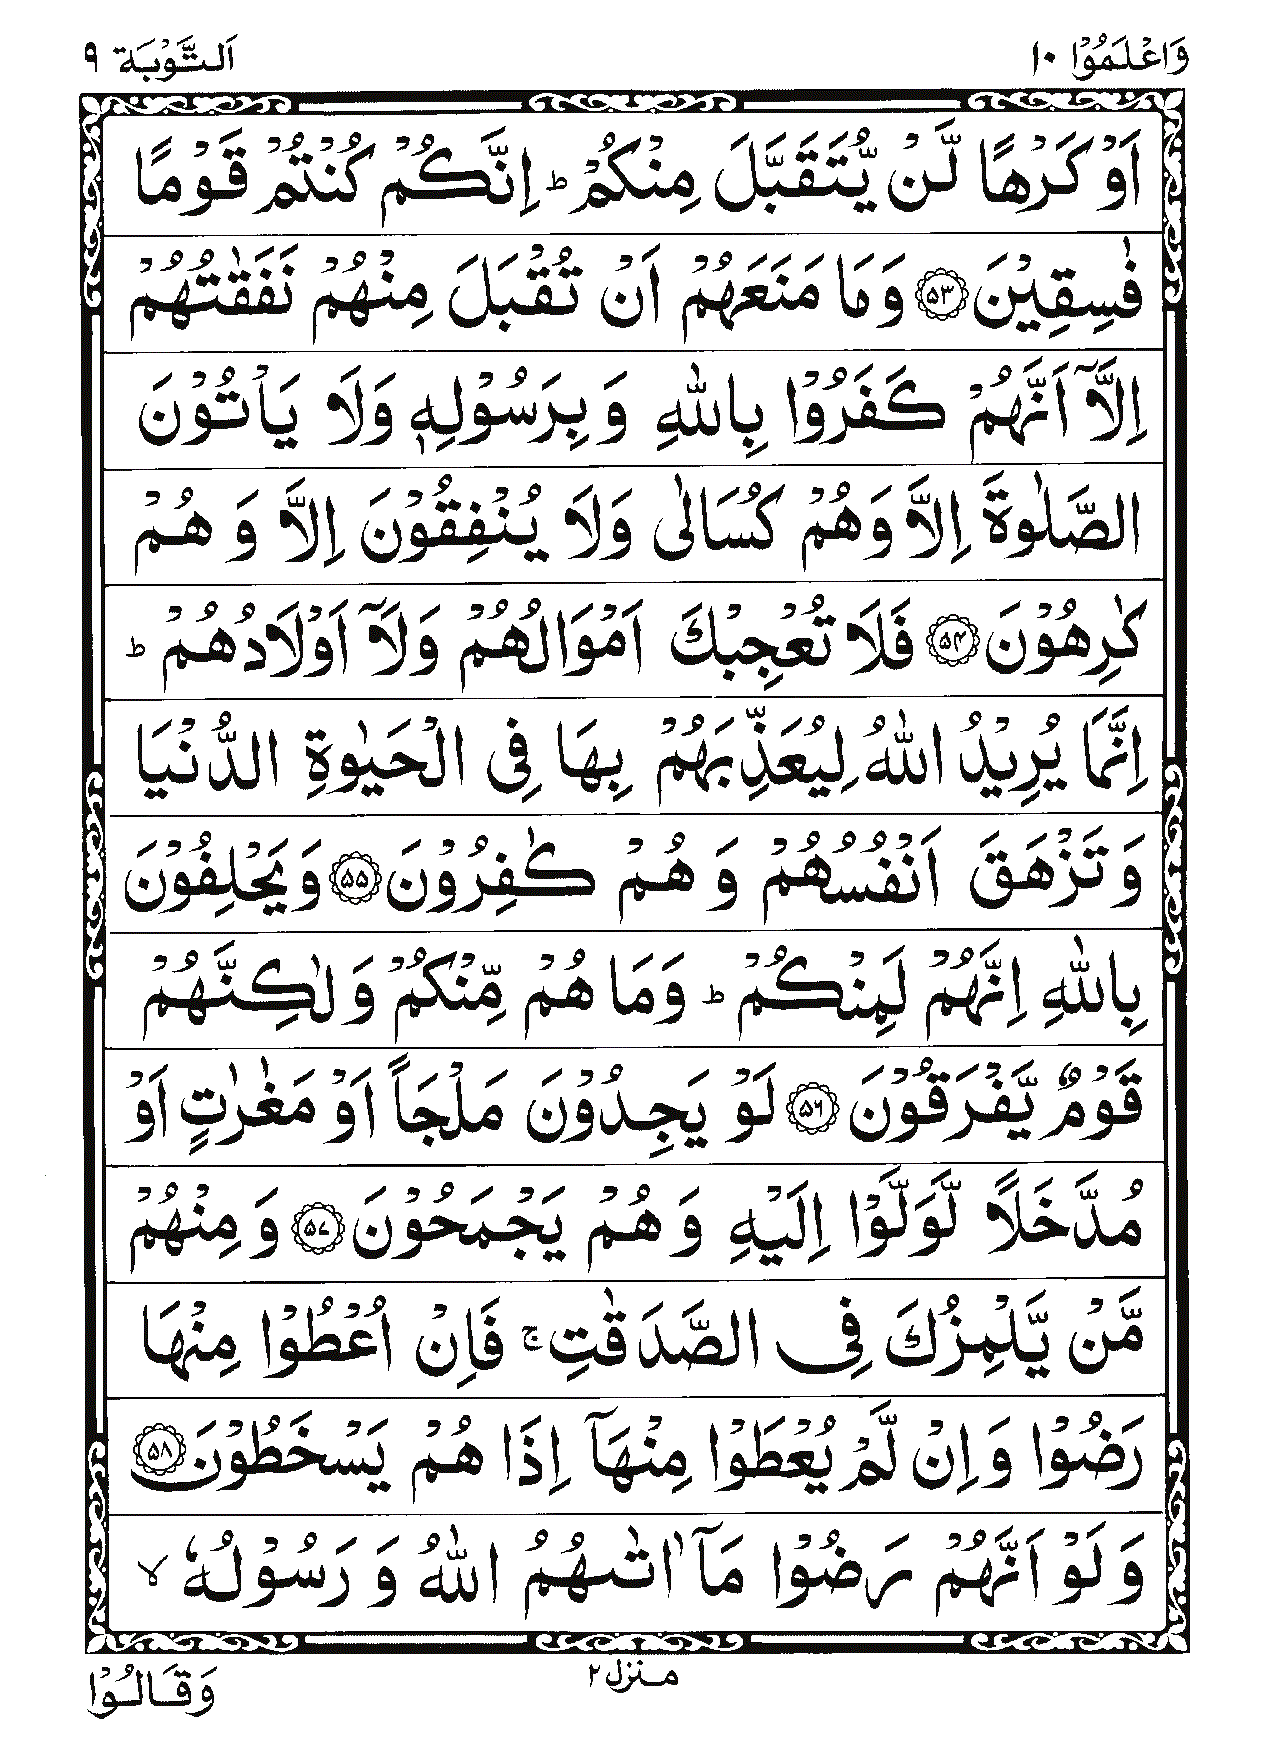 وَاعْلَمُوْٓا ١٠
اَلتَّوْبَة ٩
اَوْ كَرْهًا لَّنْ يُّتَقَبَّلَ مِنْكُمْ ؕ اِنَّكُمْ كُنْتُمْ قَوْمًا
فٰسِقِيْنَ ﴿۵۳﴾ وَمَا مَنَعَهُمْ اَنْ تُقْبَلَ مِنْهُمْ نَفَقٰتُهُمْ
اِلَّاۤ اَنَّهُمْ كَفَرُوْا بِاللّٰهِ وَ بِرَسُوْلِهٖ وَلَا يَاْتُوْنَ
الصَّلٰوةَ اِلَّا وَهُمْ كُسَالٰى وَلَا يُنْفِقُوْنَ اِلَّا وَ هُمْ
كٰرِهُوْنَ ﴿۵۴﴾ فَلَا تُعْجِبْكَ اَمْوَالُهُمْ وَلَاۤ اَوْلَادُهُمْ ؕ
اِنَّمَا يُرِيْدُ اللّٰهُ لِيُعَذِّبَهُمْ بِهَا فِى الْحَيٰوةِ الدُّنْيَا
وَ تَزْهَقَ اَنْفُسُهُمْ وَ هُمْ كٰفِرُوْنَ ﴿۵۵﴾ وَيَحْلِفُوْنَ
بِاللّٰهِ اِنَّهُمْ لَمِنْكُمْ ؕ وَمَا هُمْ مِّنْكُمْ وَلٰكِنَّهُمْ
قَوْمٌ يَّفْرَقُوْنَ ﴿۵۶﴾ لَوْ يَجِدُوْنَ مَلْجَاً اَوْ مَغٰرٰتٍ اَوْ
مُدَّخَلًا لَّوَلَّوْا اِلَيْهِ وَ هُمْ يَجْمَحُوْنَ ﴿۵۷﴾ وَ مِنْهُمْ
مَّنْ يَّلْمِزُكَ فِى الصَّدَقٰتِ ۚ فَاِنْ اُعْطُوْا مِنْهَا
رَضُوْا وَ اِنْ لَّمْ يُعْطَوْا مِنْهَاۤ اِذَا هُمْ يَسْخَطُوْنَ ﴿۵۸﴾
وَ لَوْ اَنَّهُمْ رَضُوْا مَاۤ اٰتٰىهُمُ اللّٰهُ وَ رَسُوْلُهٗ ۙ
منزل ٢
وَقَالُوْا